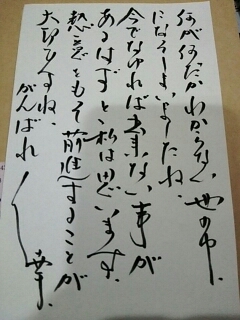 何が何だかわからない、世の中
になってしまいましたね、
今でなければ出来ない事が
あるはずと私は思います。
熱意をもって前進することが
大切ですね、
がんばれ!